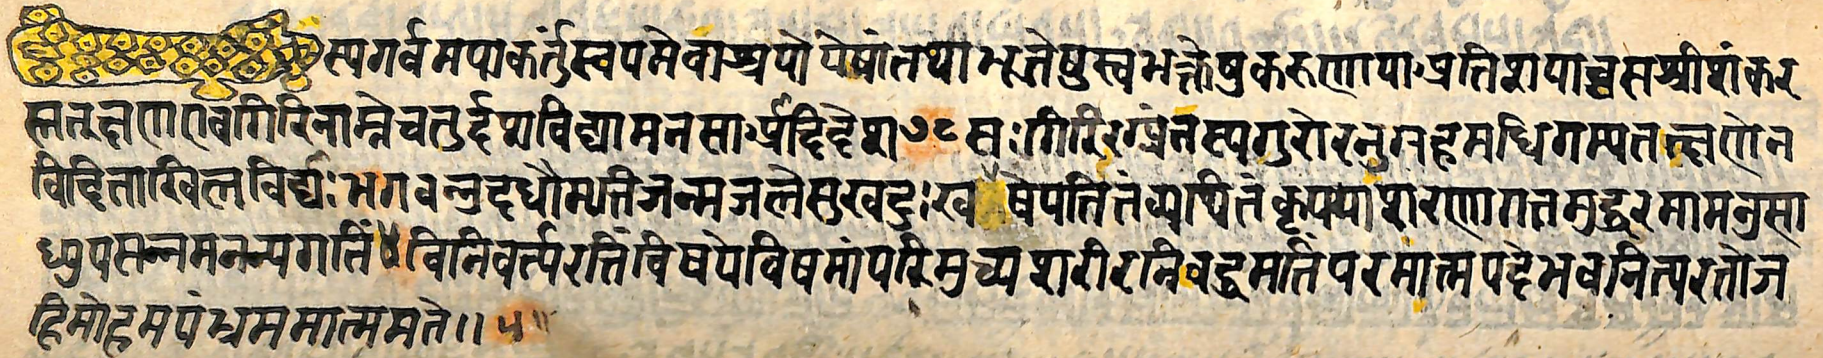 स्यगर्वमपाकर्तुंस्वयमेवाश्रयो येषांतथाभूतेषुस्वभक्तेषुकरुणायाःप्रतिशयाच्चसश्रीशंकर
स्तत्क्षणाएवगिरिनाम्नेचतुर्द्दशविद्यामनसाःप्रदिदेश ७८ सःगिरिरग्र्यंतस्यगुरोरनुग्रहमधिगम्यतत्क्षणेन
विदिताखिलविद्यः भगवन्नुदधौमृतिजन्मजलेसुखदुःख षेपतितंव्यथितं कृपयाशरणागतमुद्धरमामनुसा
ध्युपसन्नमनन्यगतिं ४ विनिवर्त्यरतिंविषयेविषमांपरिमुच्यशरीरनिबद्धमतिंपरमात्मपदेभवनित्यरतोज
हिमोहमयंभ्रममात्ममते॥ ५॥